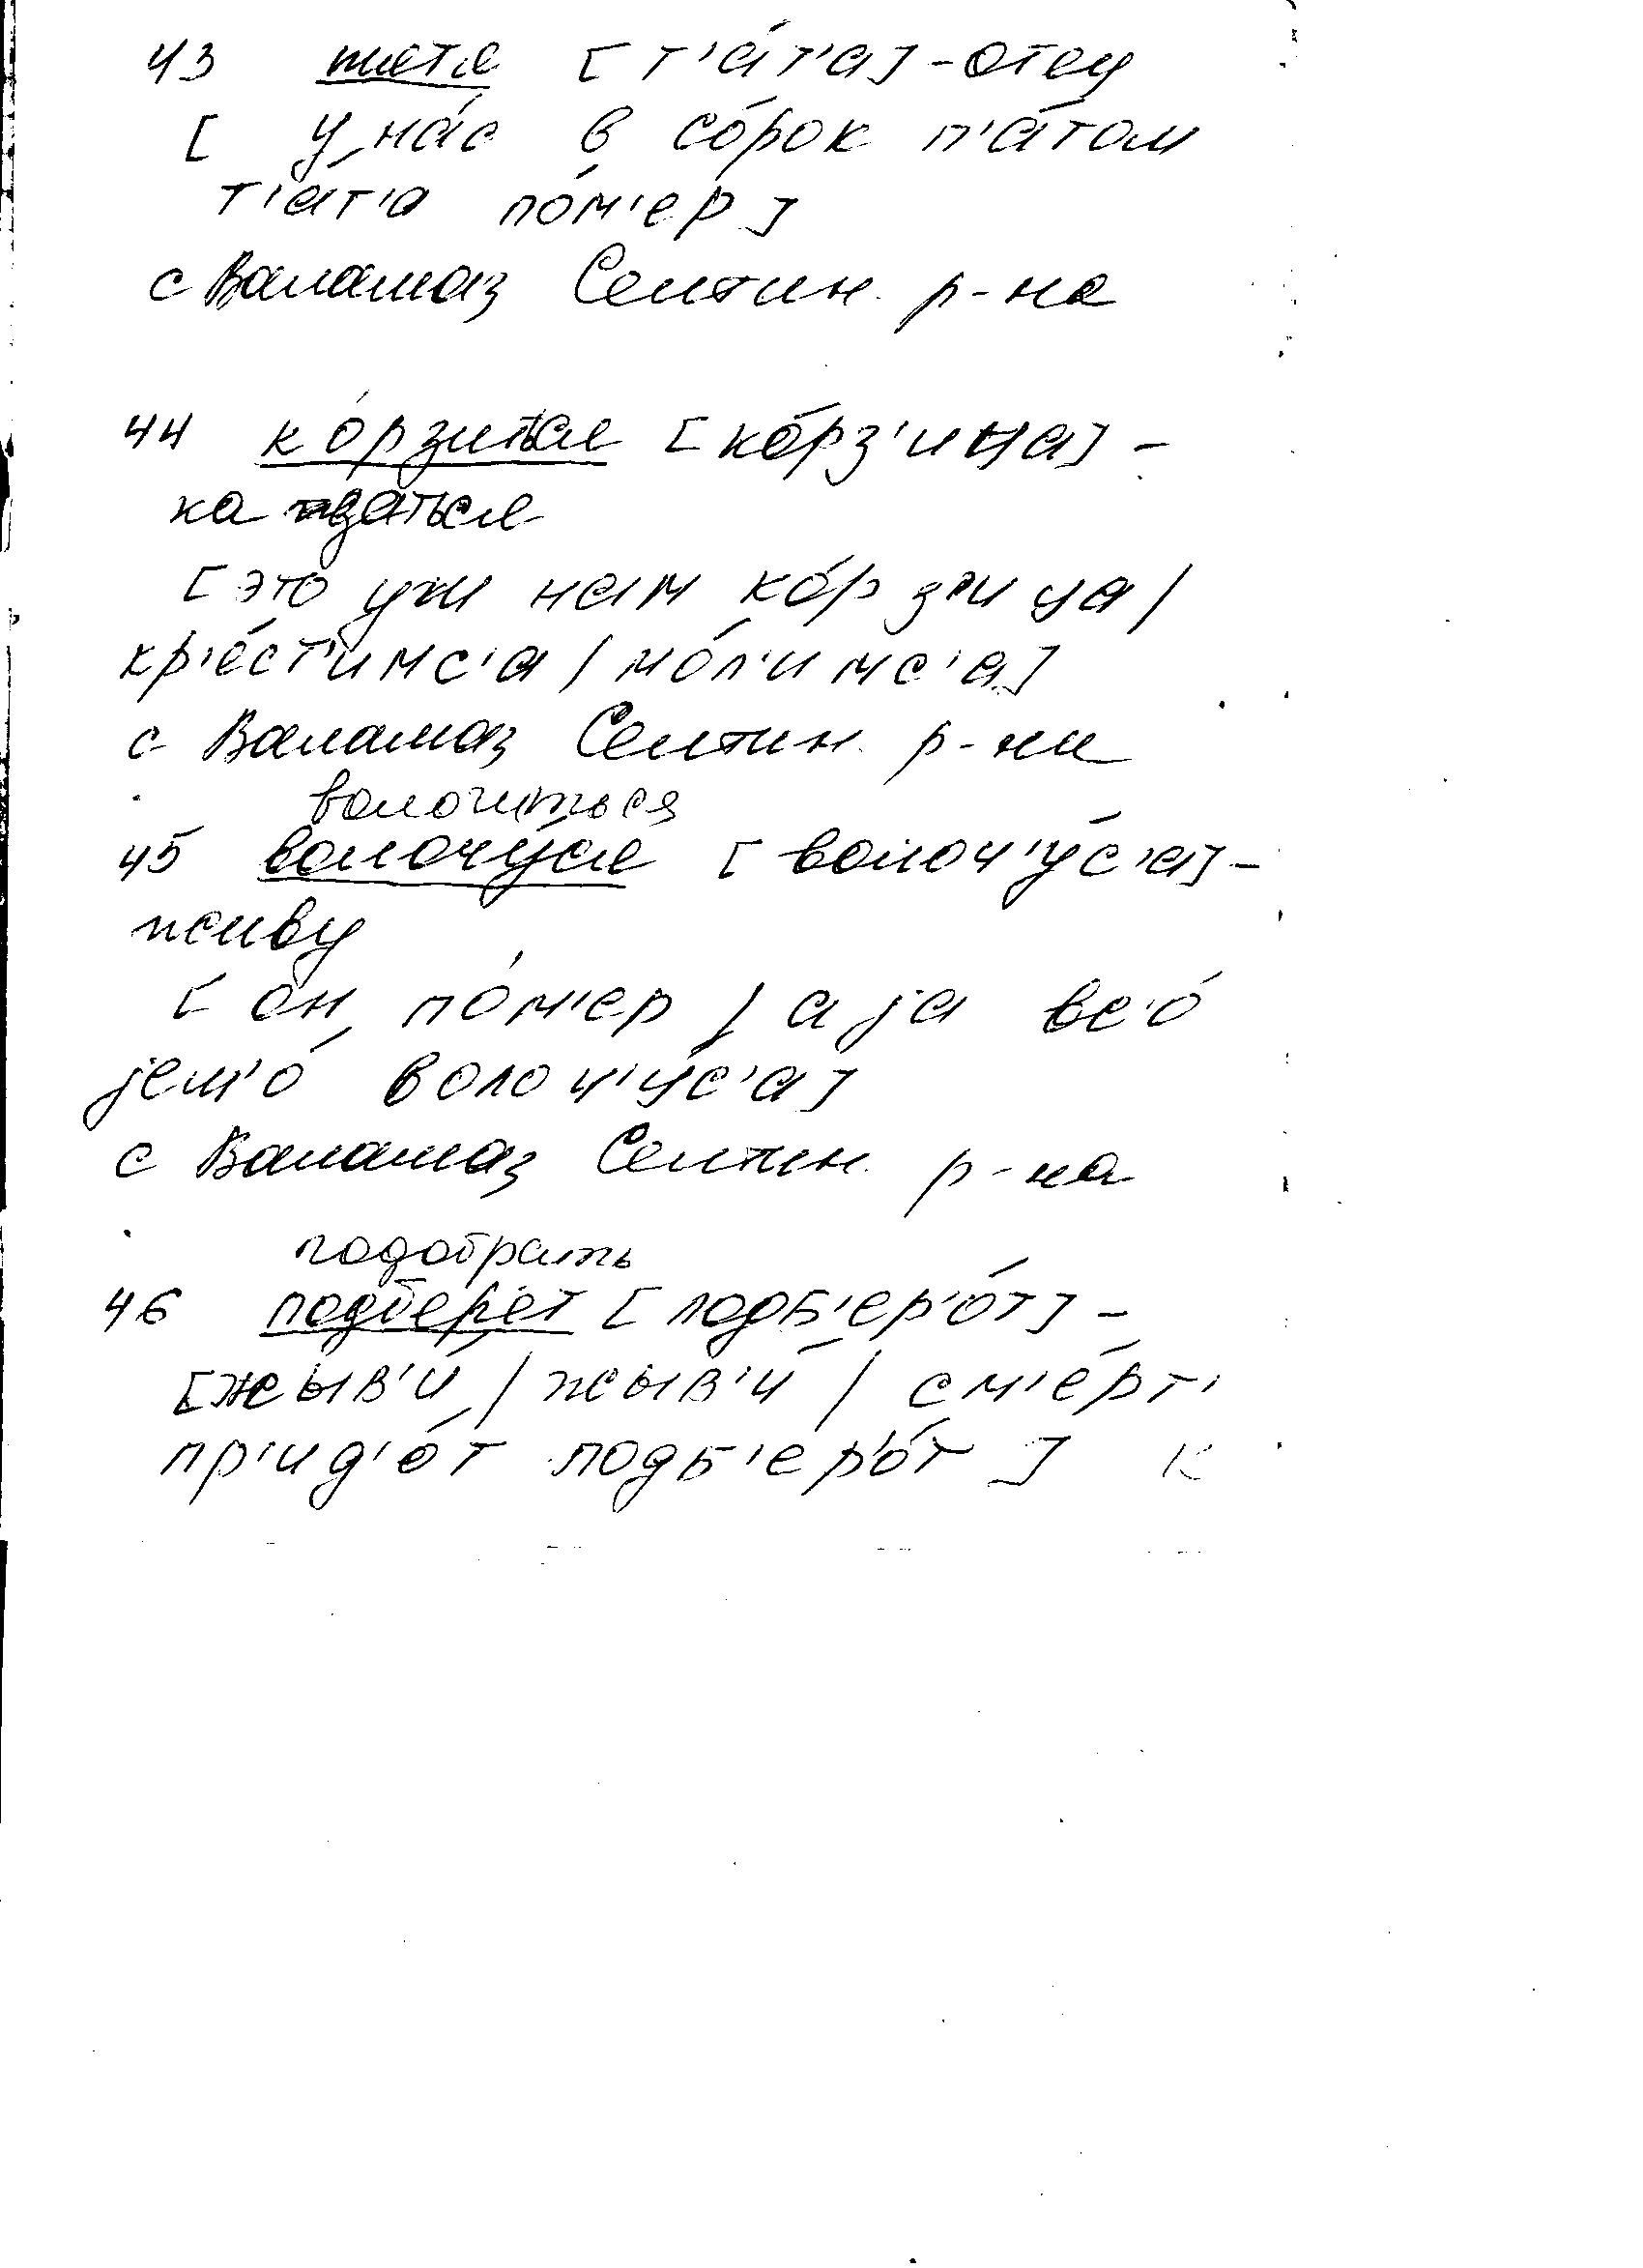 43 тятя [т'а́т'а] - отец
[ у на́с в со́рок п'а́том
т'а́т'а по́м'ер ]
с Валамаз Селтин. р-на
44 ко́рзиться [ко́рз'ица] -
казаться
[ это уж нам ко́рз'ица /
кр'е́ст'имс'а / мо́л'имс'а ]
с Валамаз Селтин. р-на
волочиться
45 волочу́ся [ волоч'у́с'а] -
живу
[ он по́м'ер / а jа вс'о́
jешо́ волоч'у́с'а ]
с Валамаз Селтин. р-на
подобрать
46 подберёт [ подб'ер'о́т ] -
[жыв'и́ / жыв'и́ / см'е́рт'
пр'ид'о́т подб'ер'о́т ] к